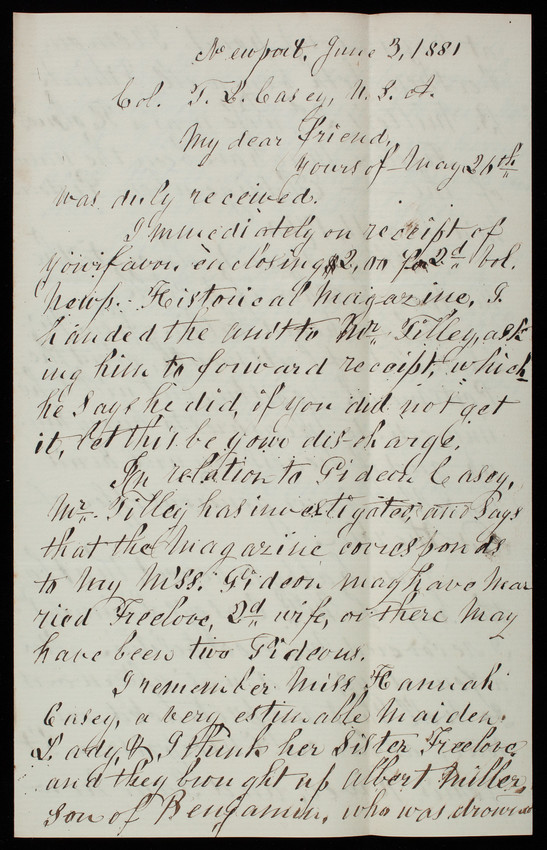 Newport, June 3, 1881
Col. T. L. Casey, U. S. A.
My dear friend,
Yours of May 26th
was duly received.
Immediately on receipt of
your favor enclosing $2,00 for 2d Vol.
Newp. Historical Magazine, I
handed the amt to Mr. Tilley, ask
ing him to forward receipt, which
he says he did, if you did not get
it, let this be your dis-charge.
In relation to Gideon Casey,
Mr. Tilley has investigated, and says
that the Magazine corresponds
to my MSS. Gideon may have mar
ried Freelove, 2d wife, or there may
have been two Gideons.
I remember Miss Hannah
Casey, a very estimable maiden
Lady, & I think her Sister Freelove,
and they brought up Albert Miller,
son of Benjamin, who was drowned